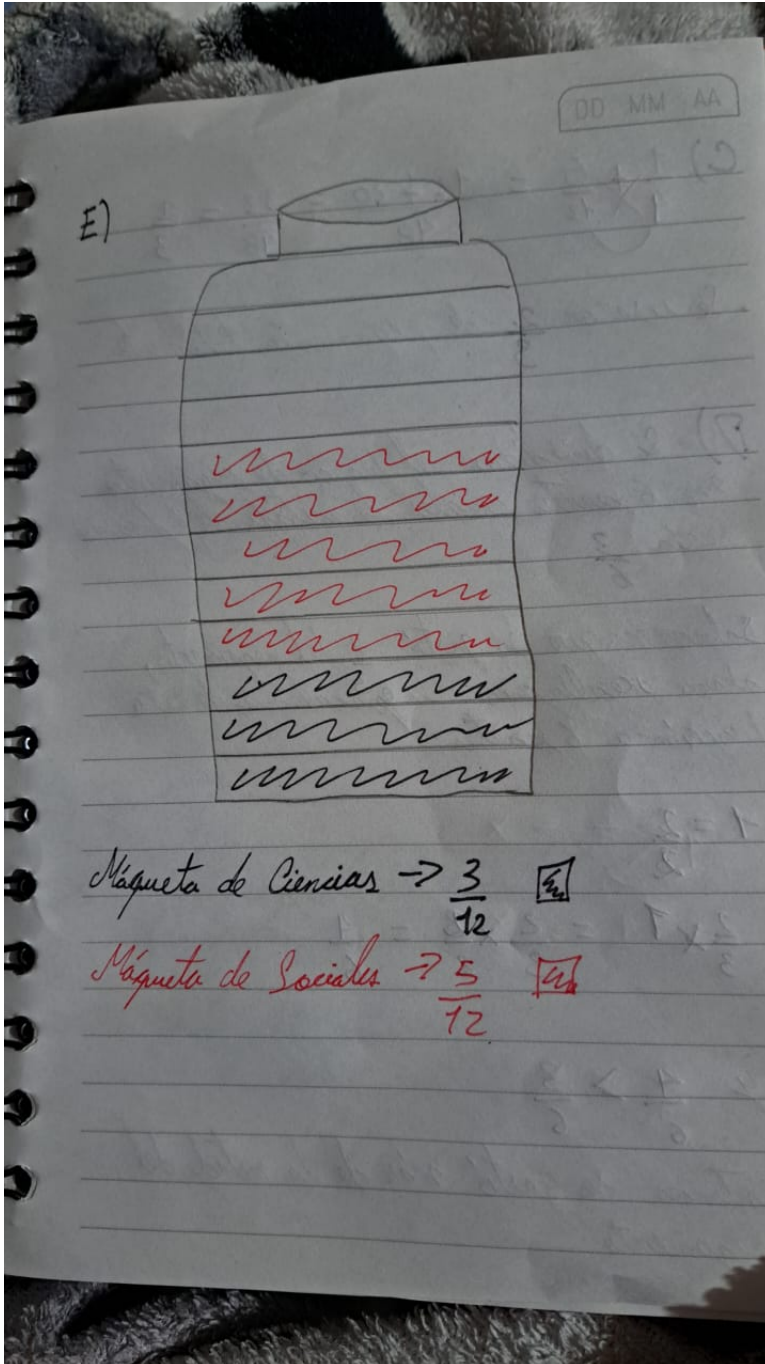 DD MM AA
E)
Máqueta de Ciencias -> 3/12
Máqueta de Sociales -> 5/12